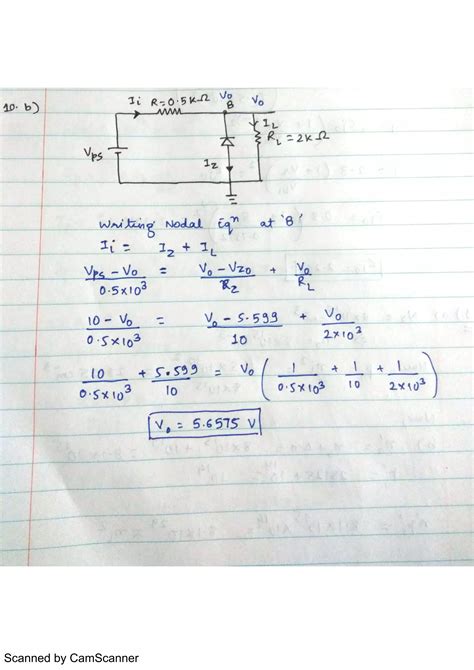 10. b)
Ii R=0.5KΩ Vo Vo
B
IL
RL = 2KΩ
Vps
Iz
Writing Nodal Eqn at 'B'
Ii = Iz + IL
Vps - Vo / 0.5×10³ = Vo - Vzo / Rz + Vo / RL
10 - Vo / 0.5×10³ = Vo - 5.599 / 10 + Vo / 2×10³
10 / 0.5×10³ + 5.599 / 10 = Vo ( 1 / 0.5×10³ + 1 / 10 + 1 / 2×10³ )
Vo = 5.6575 V
Scanned by CamScanner